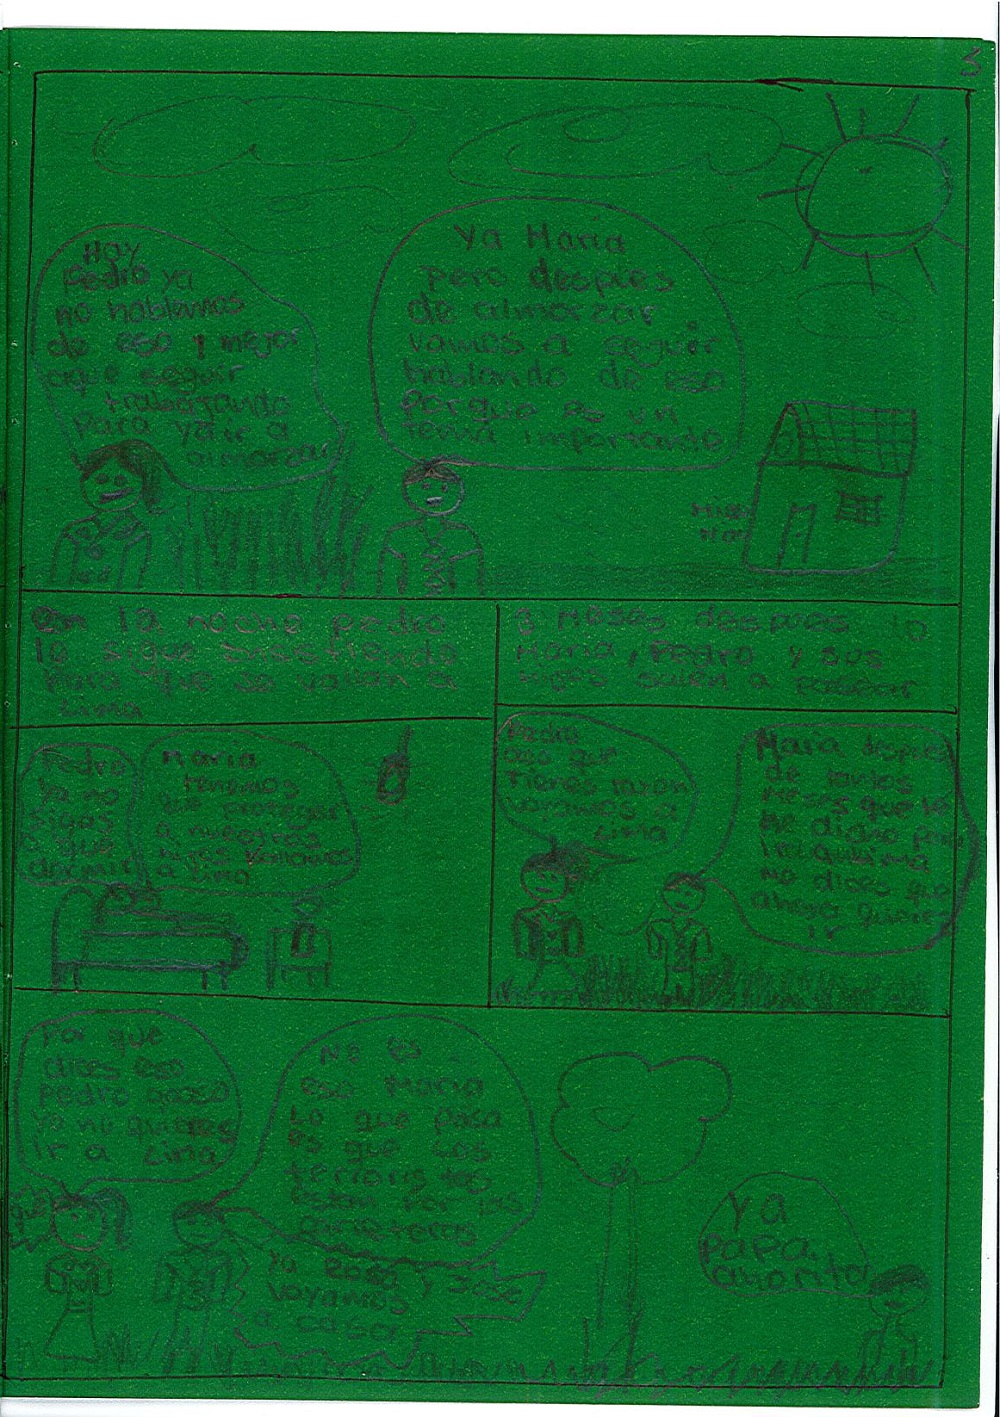 3
Hay
Pedro ya
no hablemos
de eso y mejor
que seguir
trabajando
para ya ir a
almorzar
Ya Maria
pero despues
de almorzar
vamos a seguir
hablando de eso
porque es un
tema importante
en la noche pedro
le sigue insistiendo
para que se vallan a
Lima
3 Meses despues
Maria, Pedro y sus
hijos salen a pasear
Pedro
ya no
sigas
dormir
Maria
tenemos
que proteger
a nuestros
hijos vamonos
a Lima
Pedro
aso que
tienes razon
vayamos a
Lima
Maria despues
de tantos
Meses que te
he dicho para
Lima
no dices que
ahora quieres
ir
Por que
dices eso
Pedro aaso
ya no quieres
ir a Lima
No es
eso Maria
Lo que pasa
es que Los
terroristas
estan por las
carreteras
Ya Rosa y Jose
vayamos
a casa
Ya
papa
ahorita